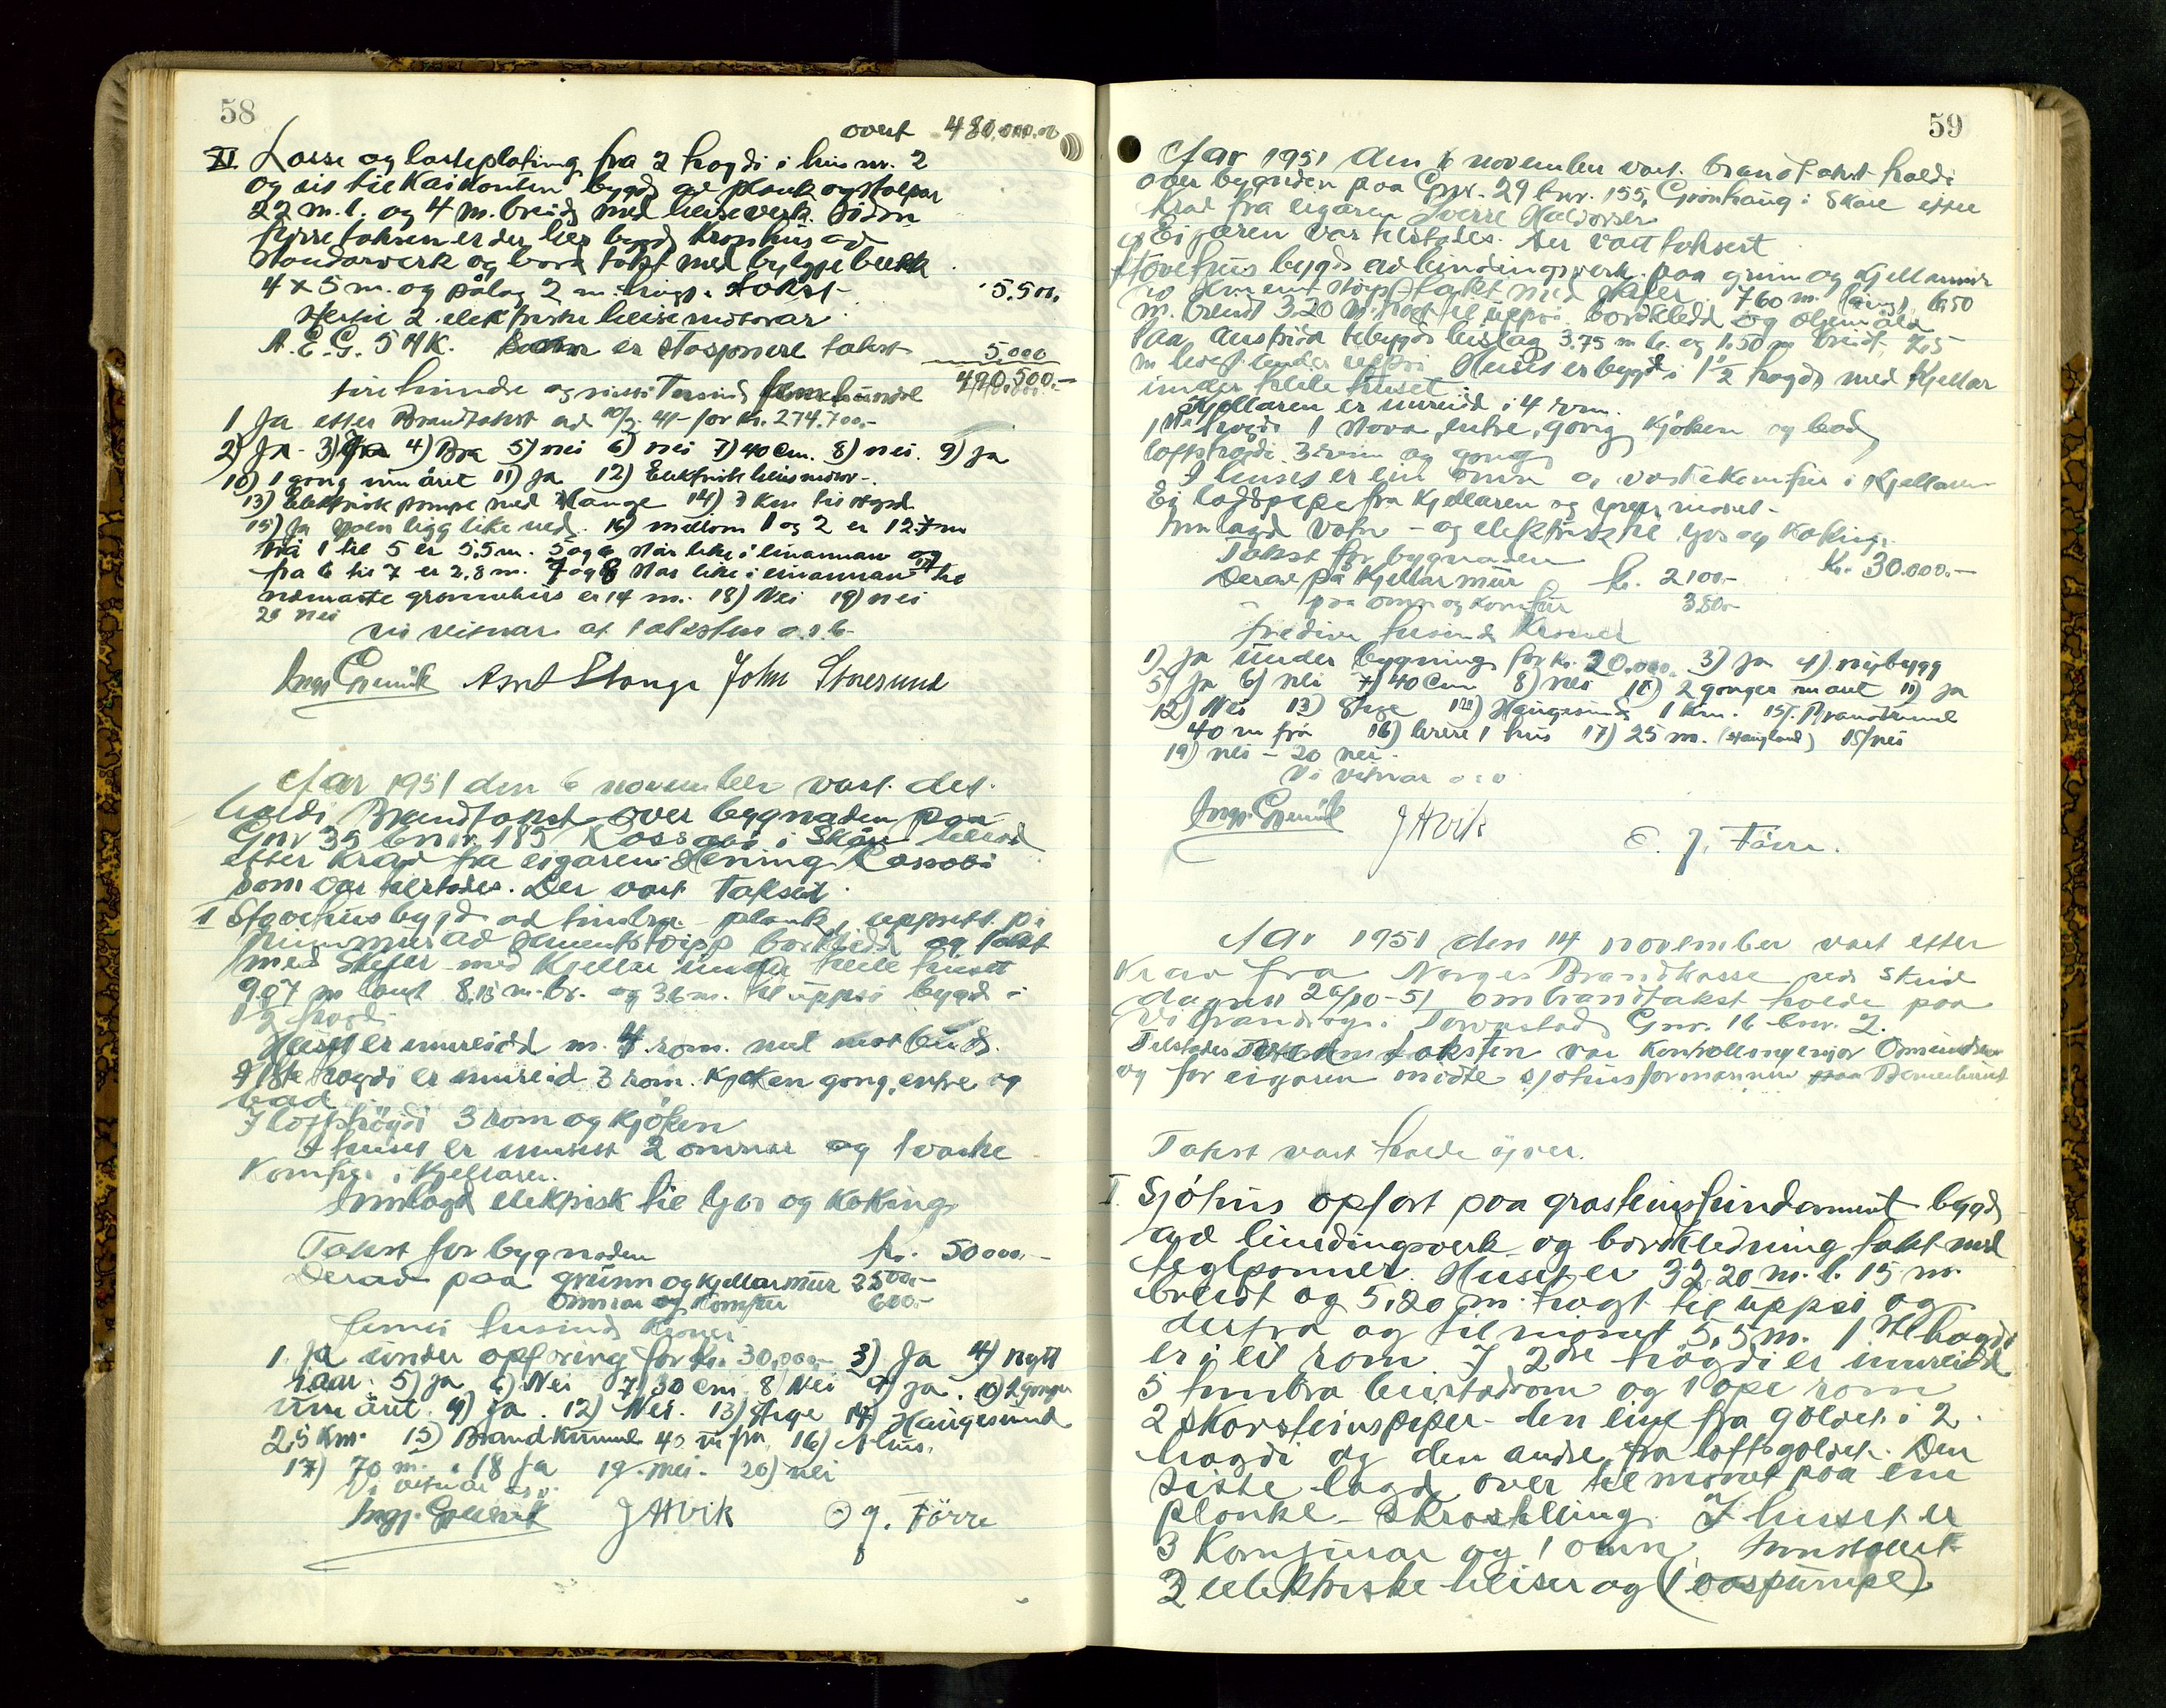 58
overt 480.000.00
XI Losse og lasteplating fra 2 høgdi i hus nr. 2
og ut til Kaikanten bygd av plank og stolpar
22 m. l. og 4 m. breid med heiseverk. Sidan
fyrre taksten er der bygd krophus av
standarverk og bord takt med bylgjeblekk
4 x 5 m. og pålag 2 m. høgd. Takst 5.500.
2 elektriske heisemotorar
A.E.G. 5 HK. er takst 5.000
490.500.-
fire hundre og nitti Tusind fem hundre
1 Ja etter Brandtakst av 10/2. 41 for Kr. 274.700,-
2) Ja - 3) Ja 4) Bra 5) nei 6) nei 7) 40 Cm. 8) nei. 9) ja
10) 1 gong um året 11) Ja 12) Elektrisk heismotor.
13) Elektrisk pumpe med slange 14) 3 Km til
15) Ja ligg like ved. 16) millom 1 og 2 er 12.7 m
frå 1 til 5 er 5,5 m. 5 og 6 står like i einannan og
fra 6 til 7 er 2,8 m. 7 og 8 star like i einannan 17) til
nærmaste grannehus er 14 m. 18) Nei 19) nei
20 nei
Vi vitnar at taksten o.s.v.
Ingv. Gjervik Arnt Stange John Storesund
Aar 1951 den 6 november vart det
haldi Brandtakst over bygnaden paa
Gnr 35 bnr. 185 Rossabø i Skåre herad
etter krav fra eigaren Hening Rossabø
som var tilstades. Der vart Taksert
I Stovehus bygd av timbra plank, uppsett på
av sements bordkledd og takt
med Skifer med Kjellar under heile huset
9,07 m langt 8,15 m. br. og 3,6 m. til uppsi bygd i
1 ½ høgdi.
Huset er innreidd m. 4 rom.
I 1ste høgdi er innreid 3 rom. Kjøken gong, entre og
bad
I loftshögdi 3 rom og Kjöken
I huset er innsett 2 omnar og 1 vaske
Komfyr i Kjellaren.
Innlagt elektrisk til ljos og Koking
Takst for bygnaden kr. 50000.-
Derav paa grunn og Kjellarmur 2500.-
Omnar og Komfur 600.-
femti tusind Kroner
1. Ja under opföring for Kr. 30,000,- 3) Ja 4) nytt
5) Ja 6) Nei 7) 30 Cm 8 Nei 9) Ja. 10) 2 gonger
um året 11) Ja. 12) Nei. 13) Stige 14) Haugesund
2,5 Km. 15) Brandkumme 40 m fra 16)
17) 70 m. 18 Ja 19. nei. 20) nei
Vi vitnar o.s.v.
Ingv. Gjervik J HVik O J. Förre
59
Aar 1951 den 6 november vart brandtakst haldi
over bygnden paa Gnr. 29 bnr. 155, Grönhaug i Skåre etter
Krav fra eigaren Sverre Haldorsen
Eigaren var tilstades. Der vart taksert
Stovehus bygd av bindingsverk paa grunn og Kjellarmur
takt med skifer 7.60 m. langt, 6.50
m. breidt 3.20 m. høgt til uppsi bordkledd og oljemåla
Paa tilbygd bislag 3.75 m l. og 1.50 m breidt 2,5
m uppsi. Huset er bygd i 1½ høgd, med Kjellar
under heile huset.
Kjellaren er innreid i 4 rom.
1ste høgdi 1 stova, entre, gong Kjöken og bad
loftshögdi 3 rum og gong
I huset er ein omn og vaskekomfur i Kjellaren
Ei pipa fra Kjellaren og yver mønet.
Innlagd vatn - og elektrisk til ljos og Koking.
Takst for bygnaden Kr. 30.000.-
Derav på Kjellarmur kr. 2100.-
" paa omn og Komfur 350.-
tredive tusind Kroner
1) Ja under bygning for Kr. 20.000. 3) Ja 4) nybygg
5) Ja 6) Nei 7) 40 Cm 8) nei 10) 2 gonger um året 11) Ja
12) Nei 13) Stige 14) Haugesund 1 Km. 15). Brandkumme
40 m frå 16) berre 1 hus 17) 25 m. 18) nei
19) nei - 20 nei.
Vi vitnar o s v
Ingv. Gjervik J HVik O. J. Förre.
Aar 1951 den 14 november vart etter
Krav fra Norges Brandkasse ved skriv
dagsett 26/10-51 ombrandtakst halde paa
i Torvastad Gnr. 16 bnr. 2.
Tilstades taksten var Kontrollingeniør Omundsen
og for eigaren møtte sjöhusformannen
Takst vart halde yver.
I Sjöhus opfört paa grasteinsfundament bygd
av bindingsverk og bordkledning takt med
teglpanner. Huset er 32.20 m. l. 15 m.
breidt og 5,20 m. høgt til uppsi og
derfra og til mönet 5,5 m. 1ste høgdi
er i eit rom. I 2dre högdi er innreidd
5 timbra og 1 ope rom
2 skorsteinspiper - den eine fra golvet i 2.
høgdi og den andre fra loftsgolvet. Den
siste lagd over til mönet paa ein
planke - I huset er
3 Komfurar og 1 omn. Innstallert
3 elektriske heiser og (1 vaspumpe)